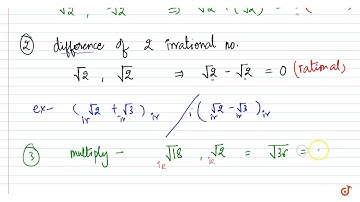 √2 , √2 ⇒ √2 + (√2) =
② difference of 2 irrational no.
√2 , √2 ⇒ √2 - √2 = 0 (rational)
ex- ( √2 + √3 ) ir / ( √2 - √3 ) ir
ir ir ir ir
③ multiply - √18 , √2 = √36 =
iR iR